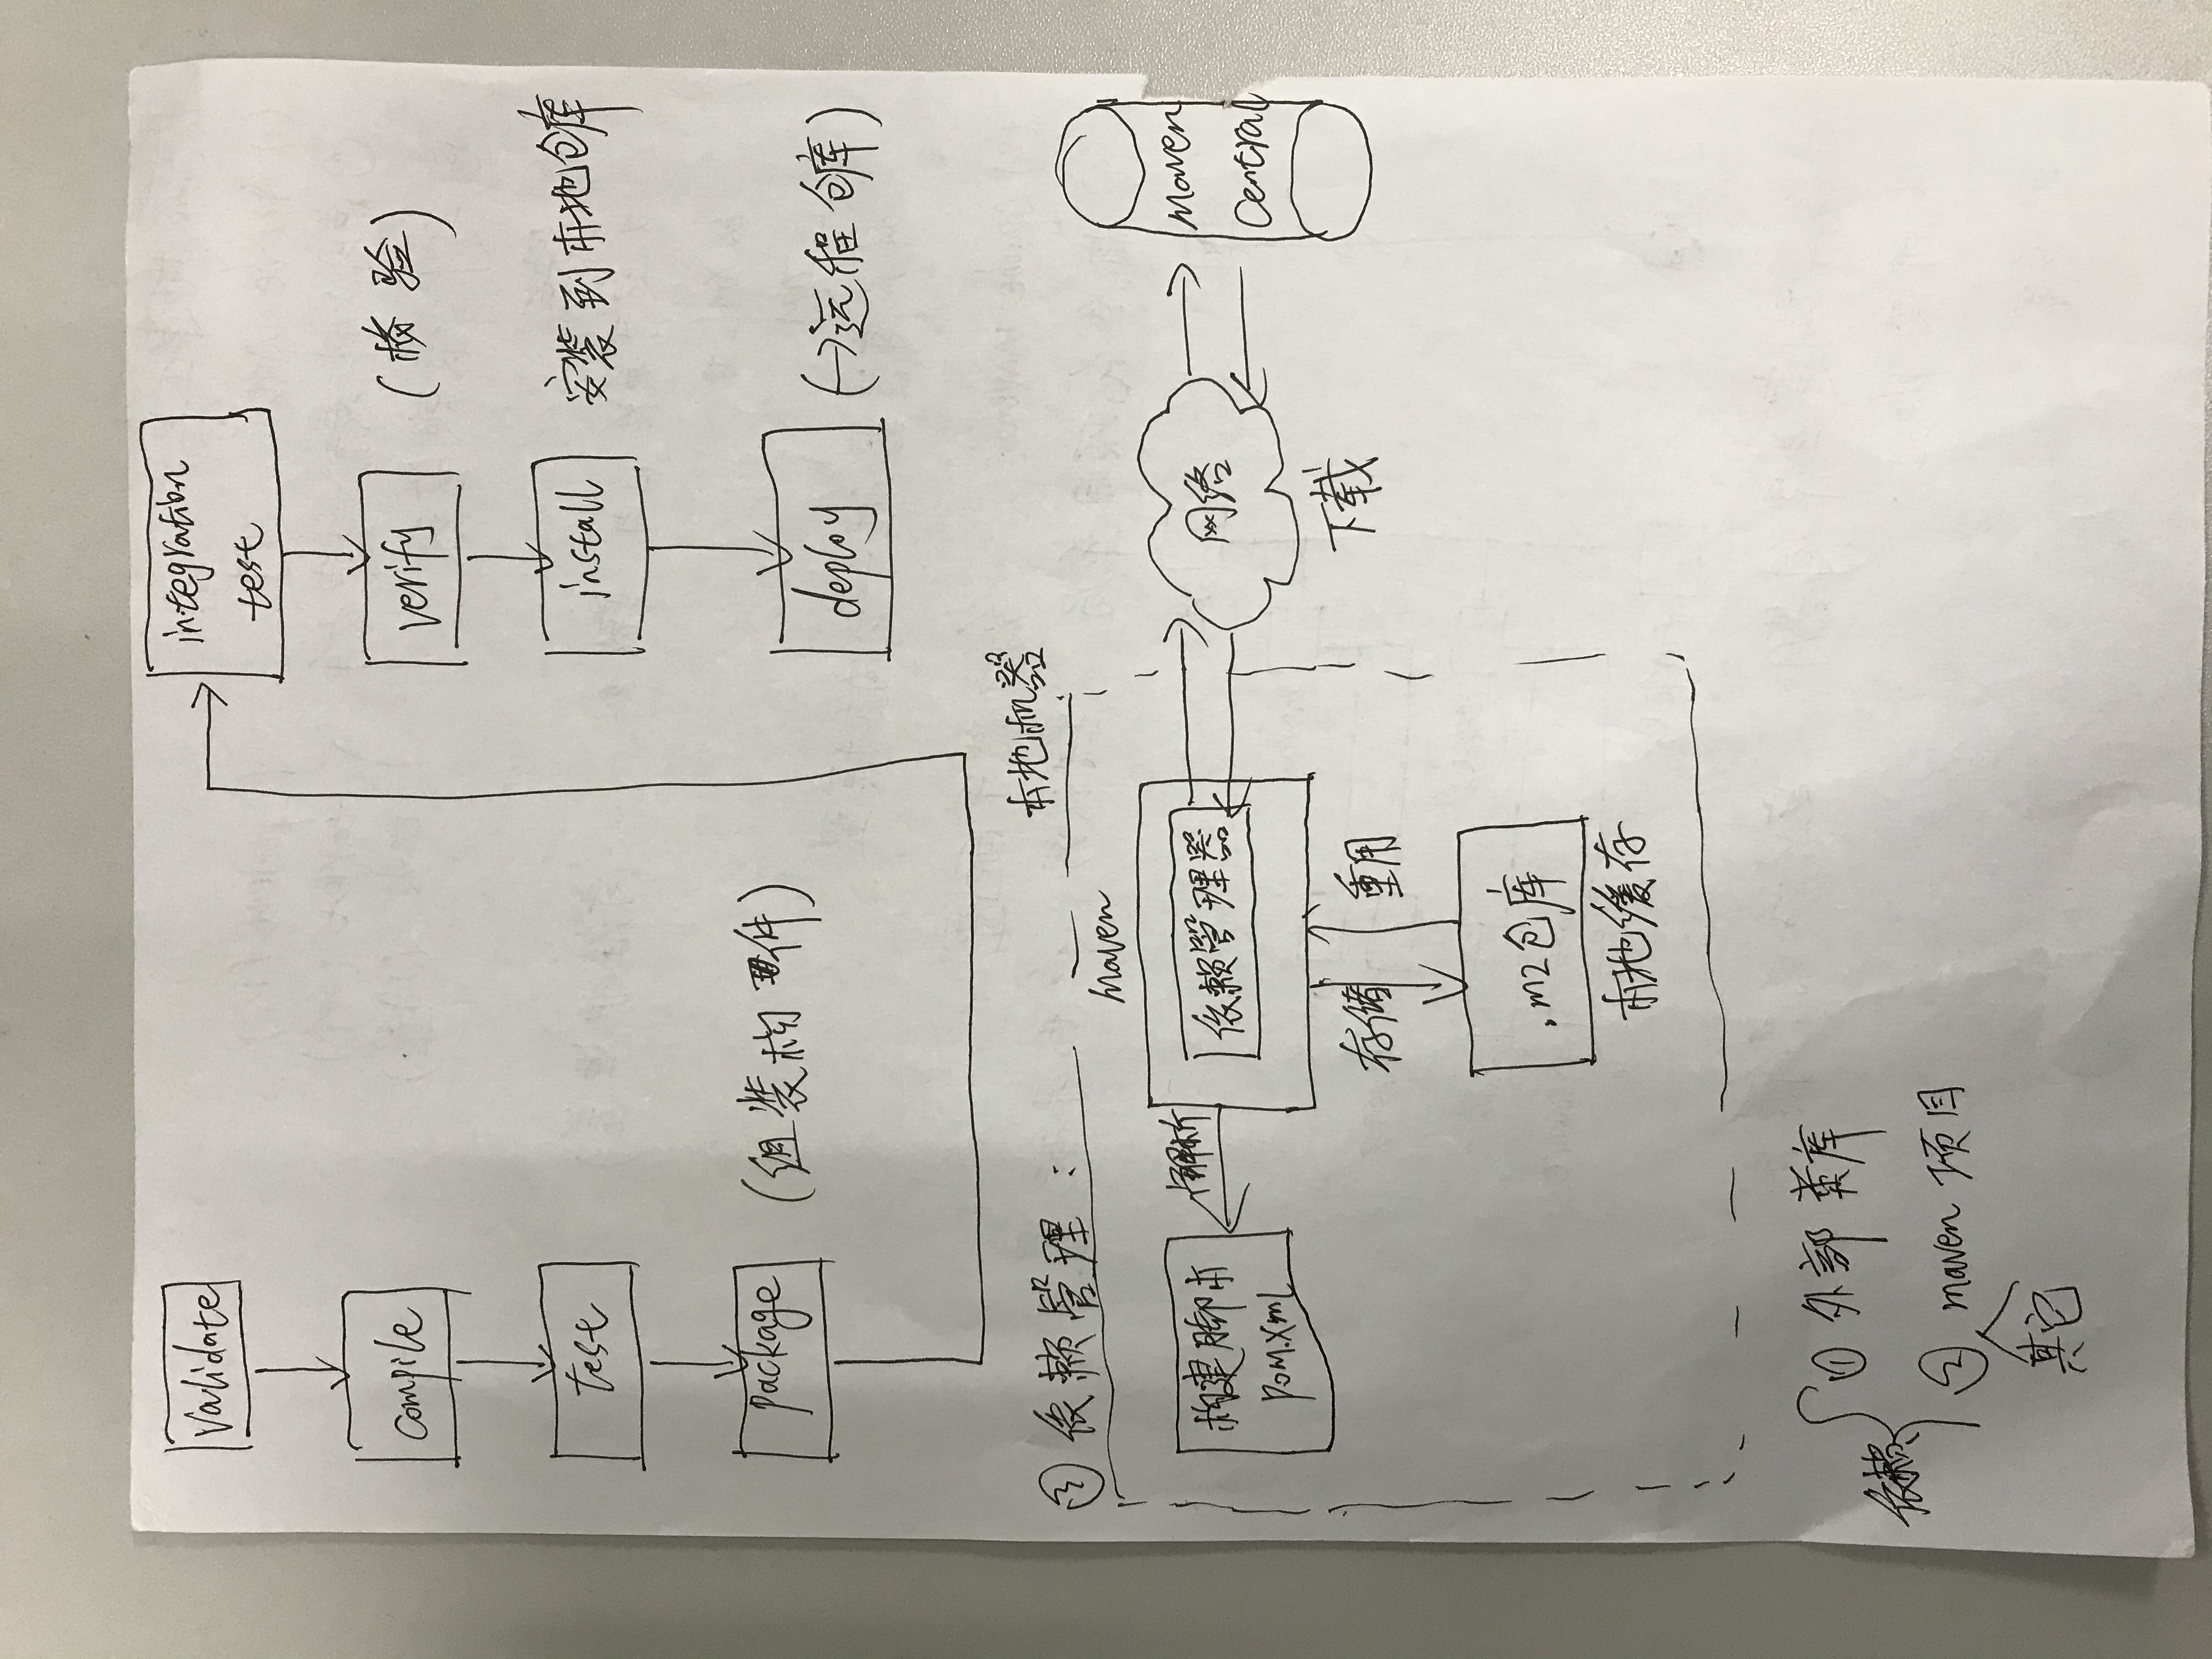 Validate
compile
test
package
(组装构件)
integration
test
verify
(检验)
install
安装到本地仓库
deploy
(→远程仓库)
② 依赖管理：
本地机器
maven
构建脚本
pom.xml
解析
依赖管理器
网络
下载
maven
central
存储
重用
.m2仓库
本地缓存
依赖
① 外部类库
② maven 项目
其它